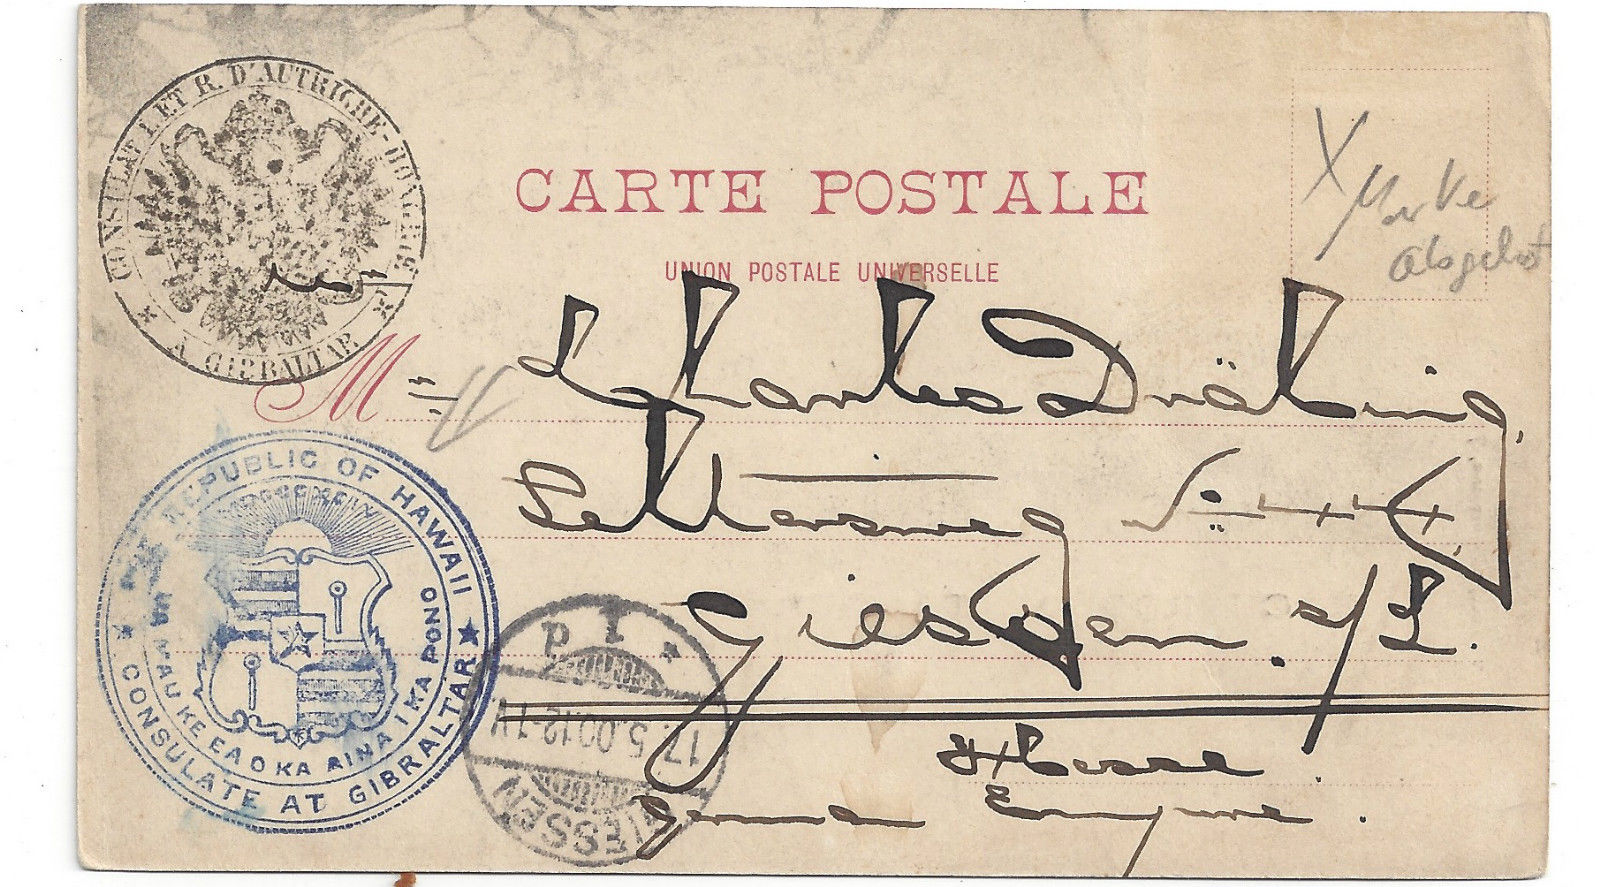 CONSULAT I. ET R. D'AUTRICHE-HONGRIE
A GIBRALTAR
CARTE POSTALE
UNION POSTALE UNIVERSELLE
X Marke
M
Charles Dräbing,
REPUBLIC OF HAWAII
UA MAU KE EA O KA AINA I KA PONO
CONSULATE AT GIBRALTAR
Seltersweg
Giessen. a/L.
GIESSEN
17.5.00.12-1V
Hesse
German Empire.